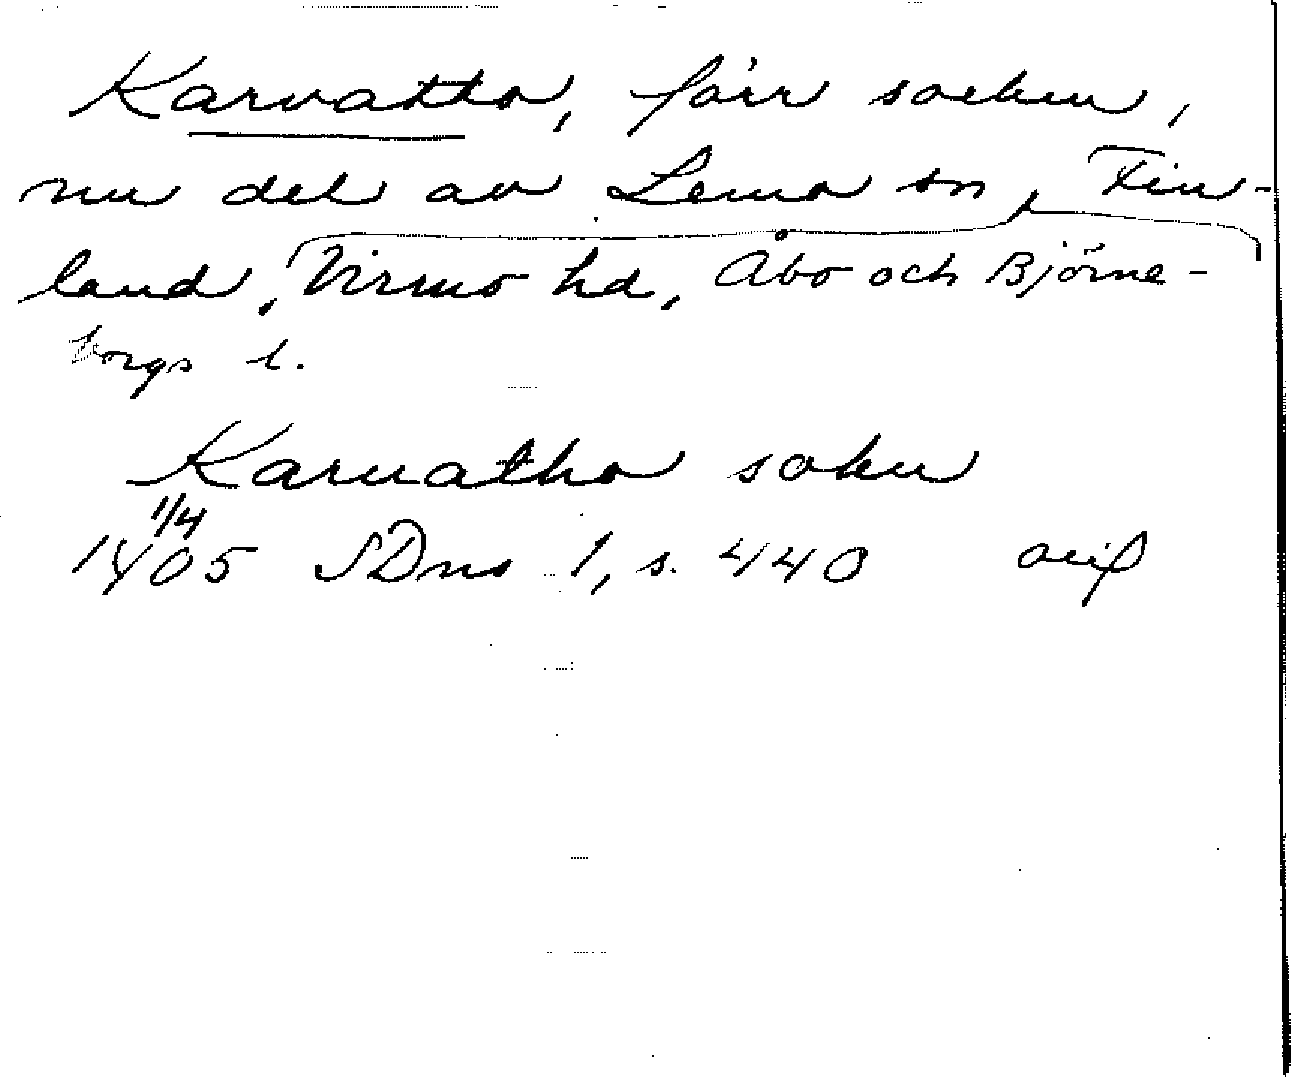 Karvatto, förr socken,
nu del av Lemo sn, Fin-
land, Virmo hd, Åbo och Björne-
borgs l.
Karuatho sokn
1/4
1405 SDns 1, s. 440 avs